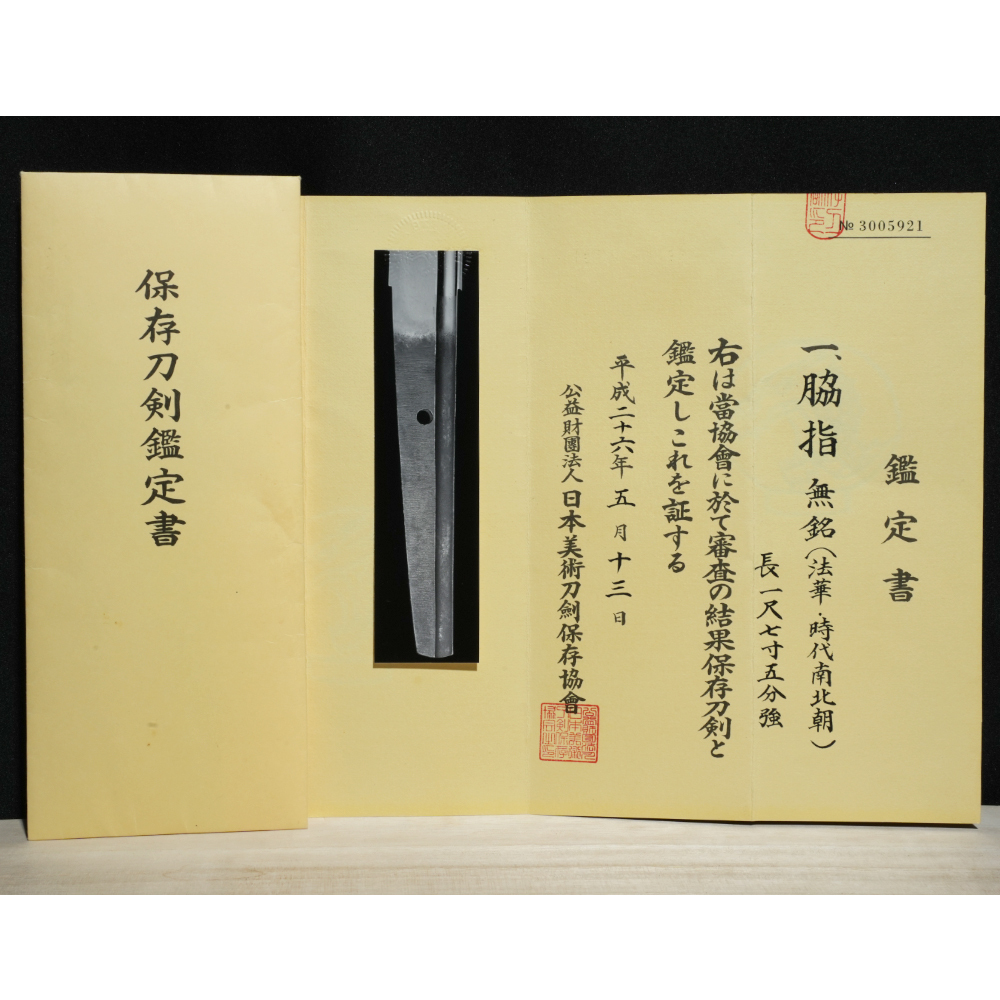 保存刀剣鑑定書
№ 3005921
鑑定書
一、脇指 無銘(法華・時代南北朝)
長一尺七寸五分強
右は當協會に於て審査の結果保存刀剣と
鑑定しこれを証する
平成二十六年 五月十三日
公益財團法人 日本美術刀劍保存協會